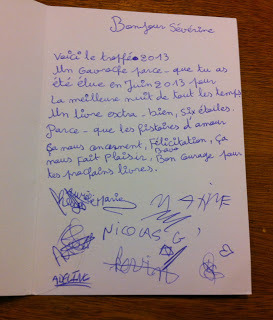 Bonjour Séverine
Voici le troffée 2013
Un Gavroche parce-que tu as
été élue en Juin 2013 pour
La meilleure nuit de tout les temps
Un livre extra-bien, six étoiles.
Parce-que les histoires d'amour
ça nous concernent, Félicitation, ça
nous fait plaisir, Bon courage pour
tes prochains livres.
Marie
NICOLAS G